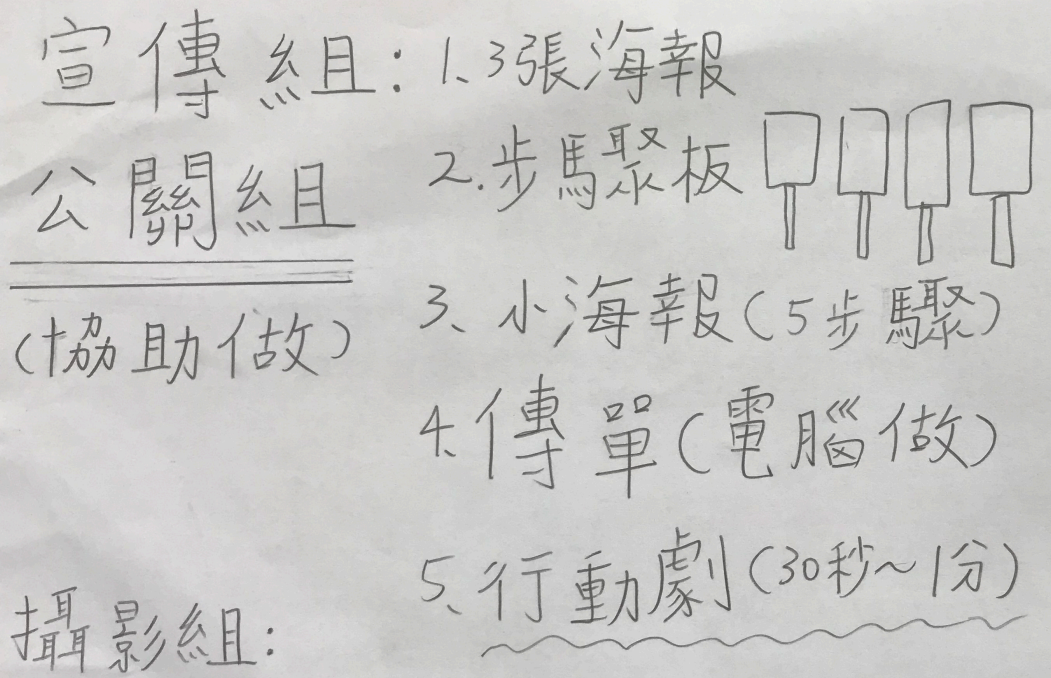 宣傳組:1、3張海報
公關組
(協助做)
2.步驟板
3、小海報(5步驟)
4、傳單(電腦做)
5、行動劇(30秒~1分)
攝影組: